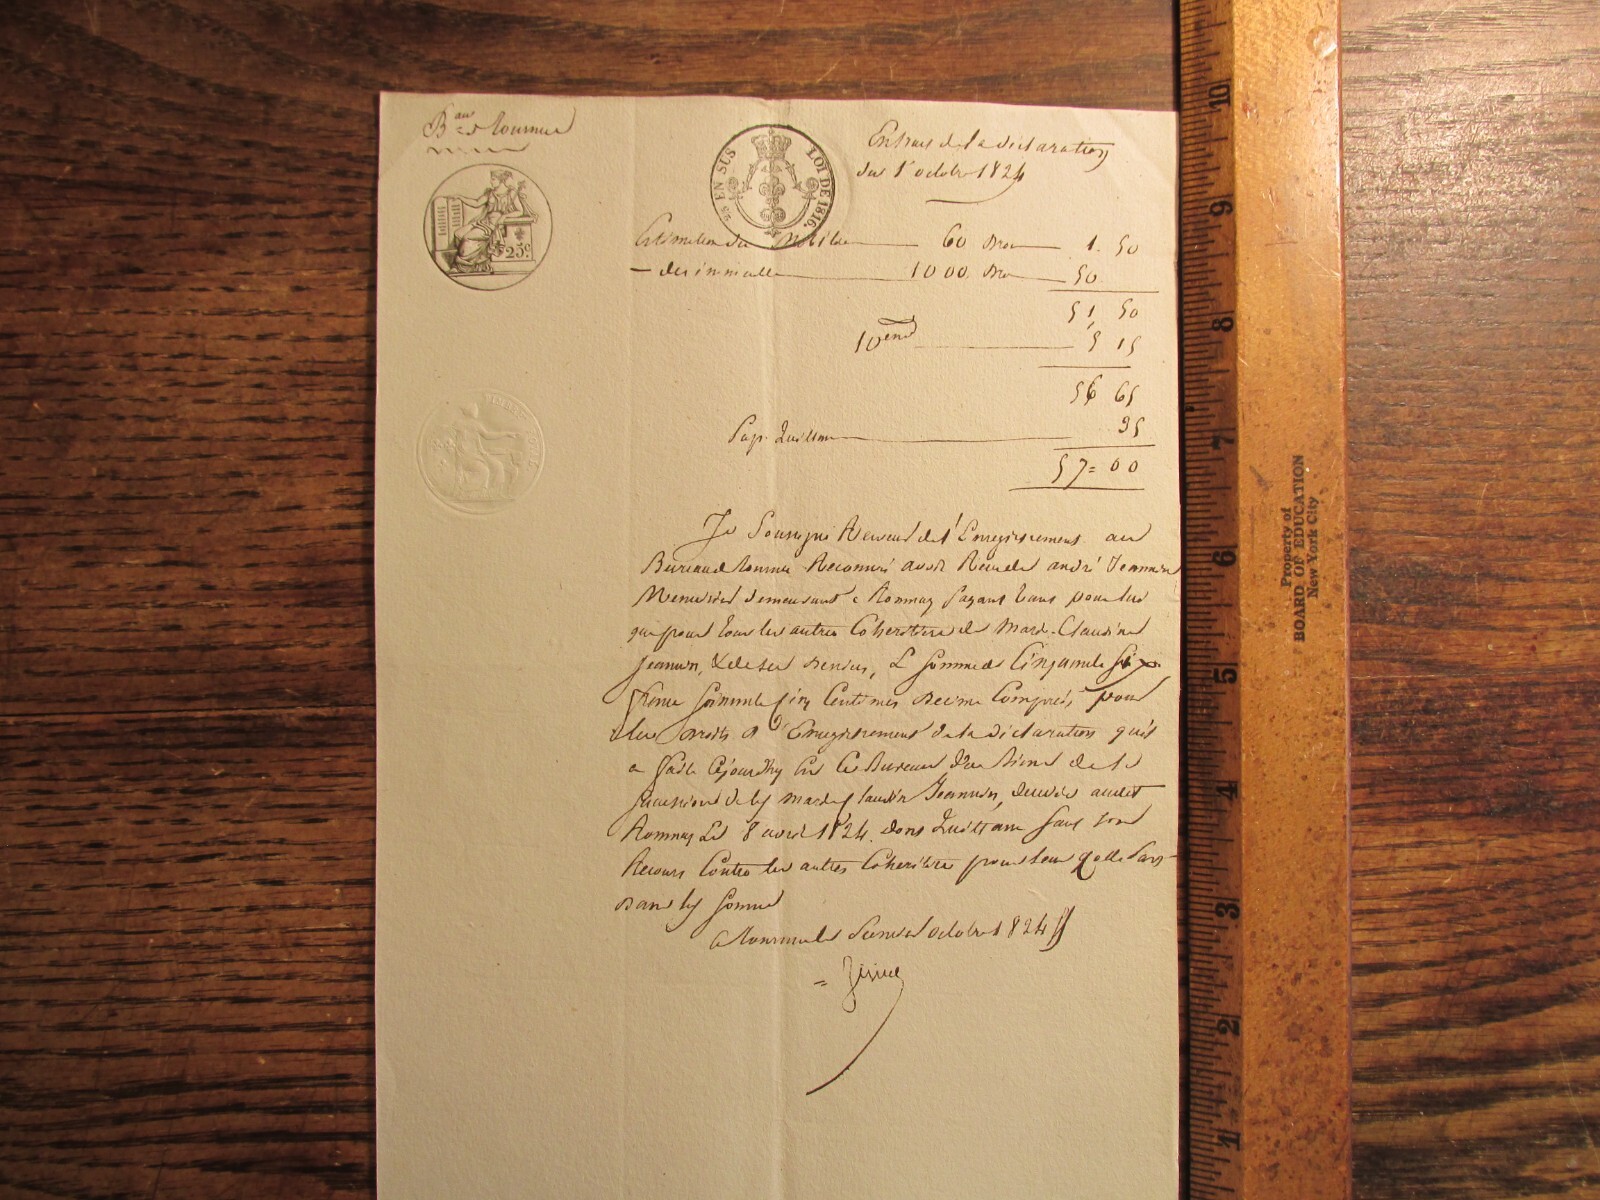 B.au de Tournus
25 EN SUS
LOI DE 1816.
25.c
Extrait de la déclaration
du 1er octobre 1824
Estimation du Mobilier 60 Droit 1. 50
— des immeubles 1000 Droit 50
51, 50
10eme 5 15
56 65
Pap. Quittance 35
57= 00
Je Soussigné Receveur de l'Enregistrement au
Bureau de Tournus Reconnais avoir Recu de andré Jeannin
Menuisier demeurant a Romenay payant tant pour lui
que pour tous les autres Coheritiers de Marie-Claudine
Jeannin, & de ses deniers, la Somme de Cinquante Six
francs Soixante Cinq Centimes decime Compris, pour
les droits d'Enregistrement de la déclaration qu'il
a faite Cejourd'hy en ce Bureau des Biens de la
Succession de la de Marie Claudine Jeannin, decedée audit
Romenay Le 8 avril 1824. dont Quittance Sauf son
Recours Contre les autres Coheritiers pour leur quotte Part
dans la Somme
a Tournus le octobre 1824
Property of
BOARD OF EDUCATION
New York City
10
9
8
7
6
5
4
3
2
1